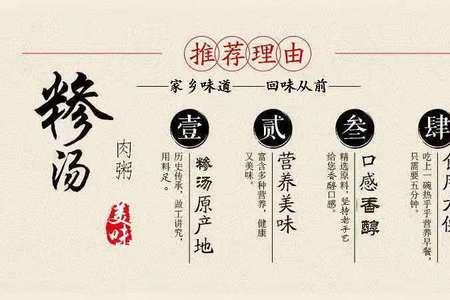 推荐理由
家乡味道——回味从前
糁汤
肉粥
美味
壹
糁汤原产地
历史传承,做工讲究,
用料足。
贰
营养美味
富含多种营养,健康
又美味。
叁
口感香醇
精选原料,坚持老手艺
给您香醇口感。
肆
食用方便
吃上一碗热乎乎营养早餐,
只需要五分钟。